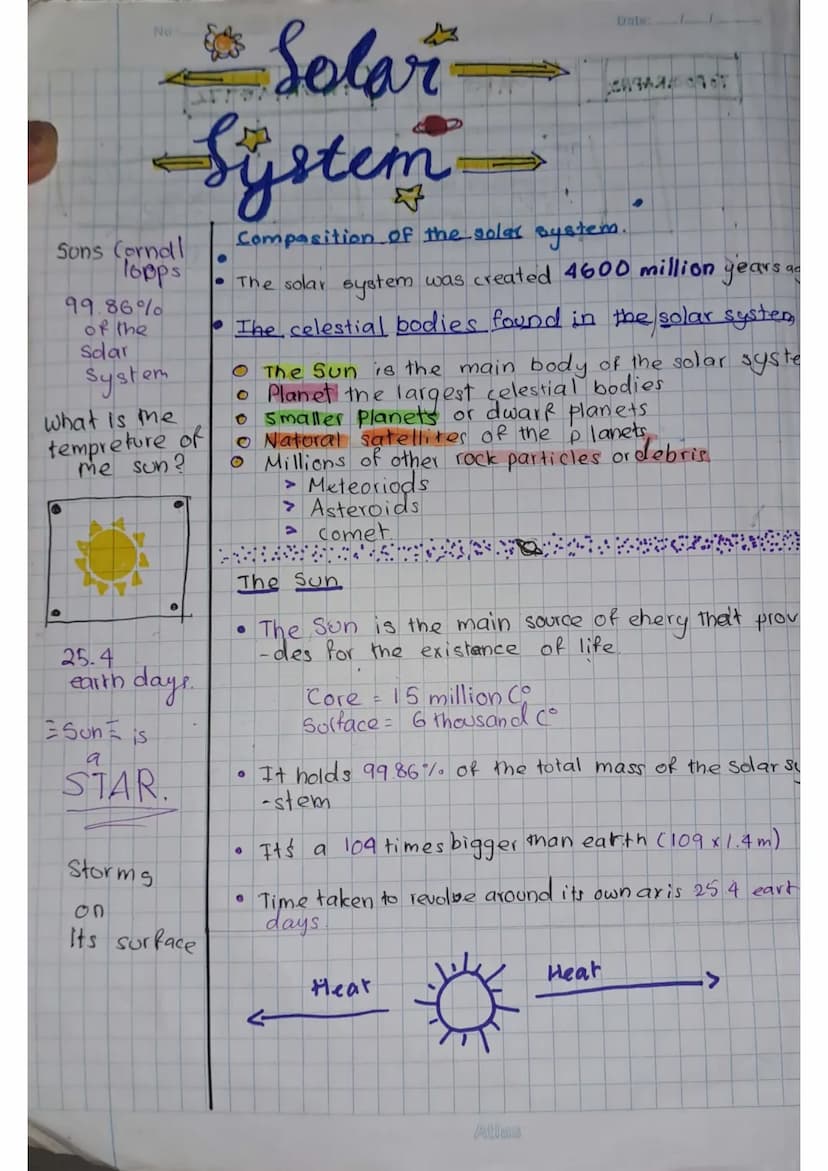 No
Date: / /
Solar
System
Composition of the solar system.
The solar system was created 4600 million years ag
The celestial bodies found in the solar system
The Sun is the main body of the solar syste
Planet the largest celestial bodies
Smaller Planets or dwarf planets
Natoral satellites of the planets
Millions of other rock particles or debris
> Meteoriods
> Asteroids
> comet
The Sun
The Sun is the main source of enery that prov
-des for the existance of life
Core = 15 million C°
Solface = 6 thousand C°
It holds 99.86% of the total mass of the solar sy
-stem
It's a 109 times bigger than earth (109 x 1.4m)
Time taken to revolve around its own axis 25.4 eart
days.
Heat
Heat
Suns
99.86%
of the
Solar
System
what is the
tempreture of
the sun?
25.4
earth days.
Sun is
a
STAR.
Storms
on
Its surface
Atlas